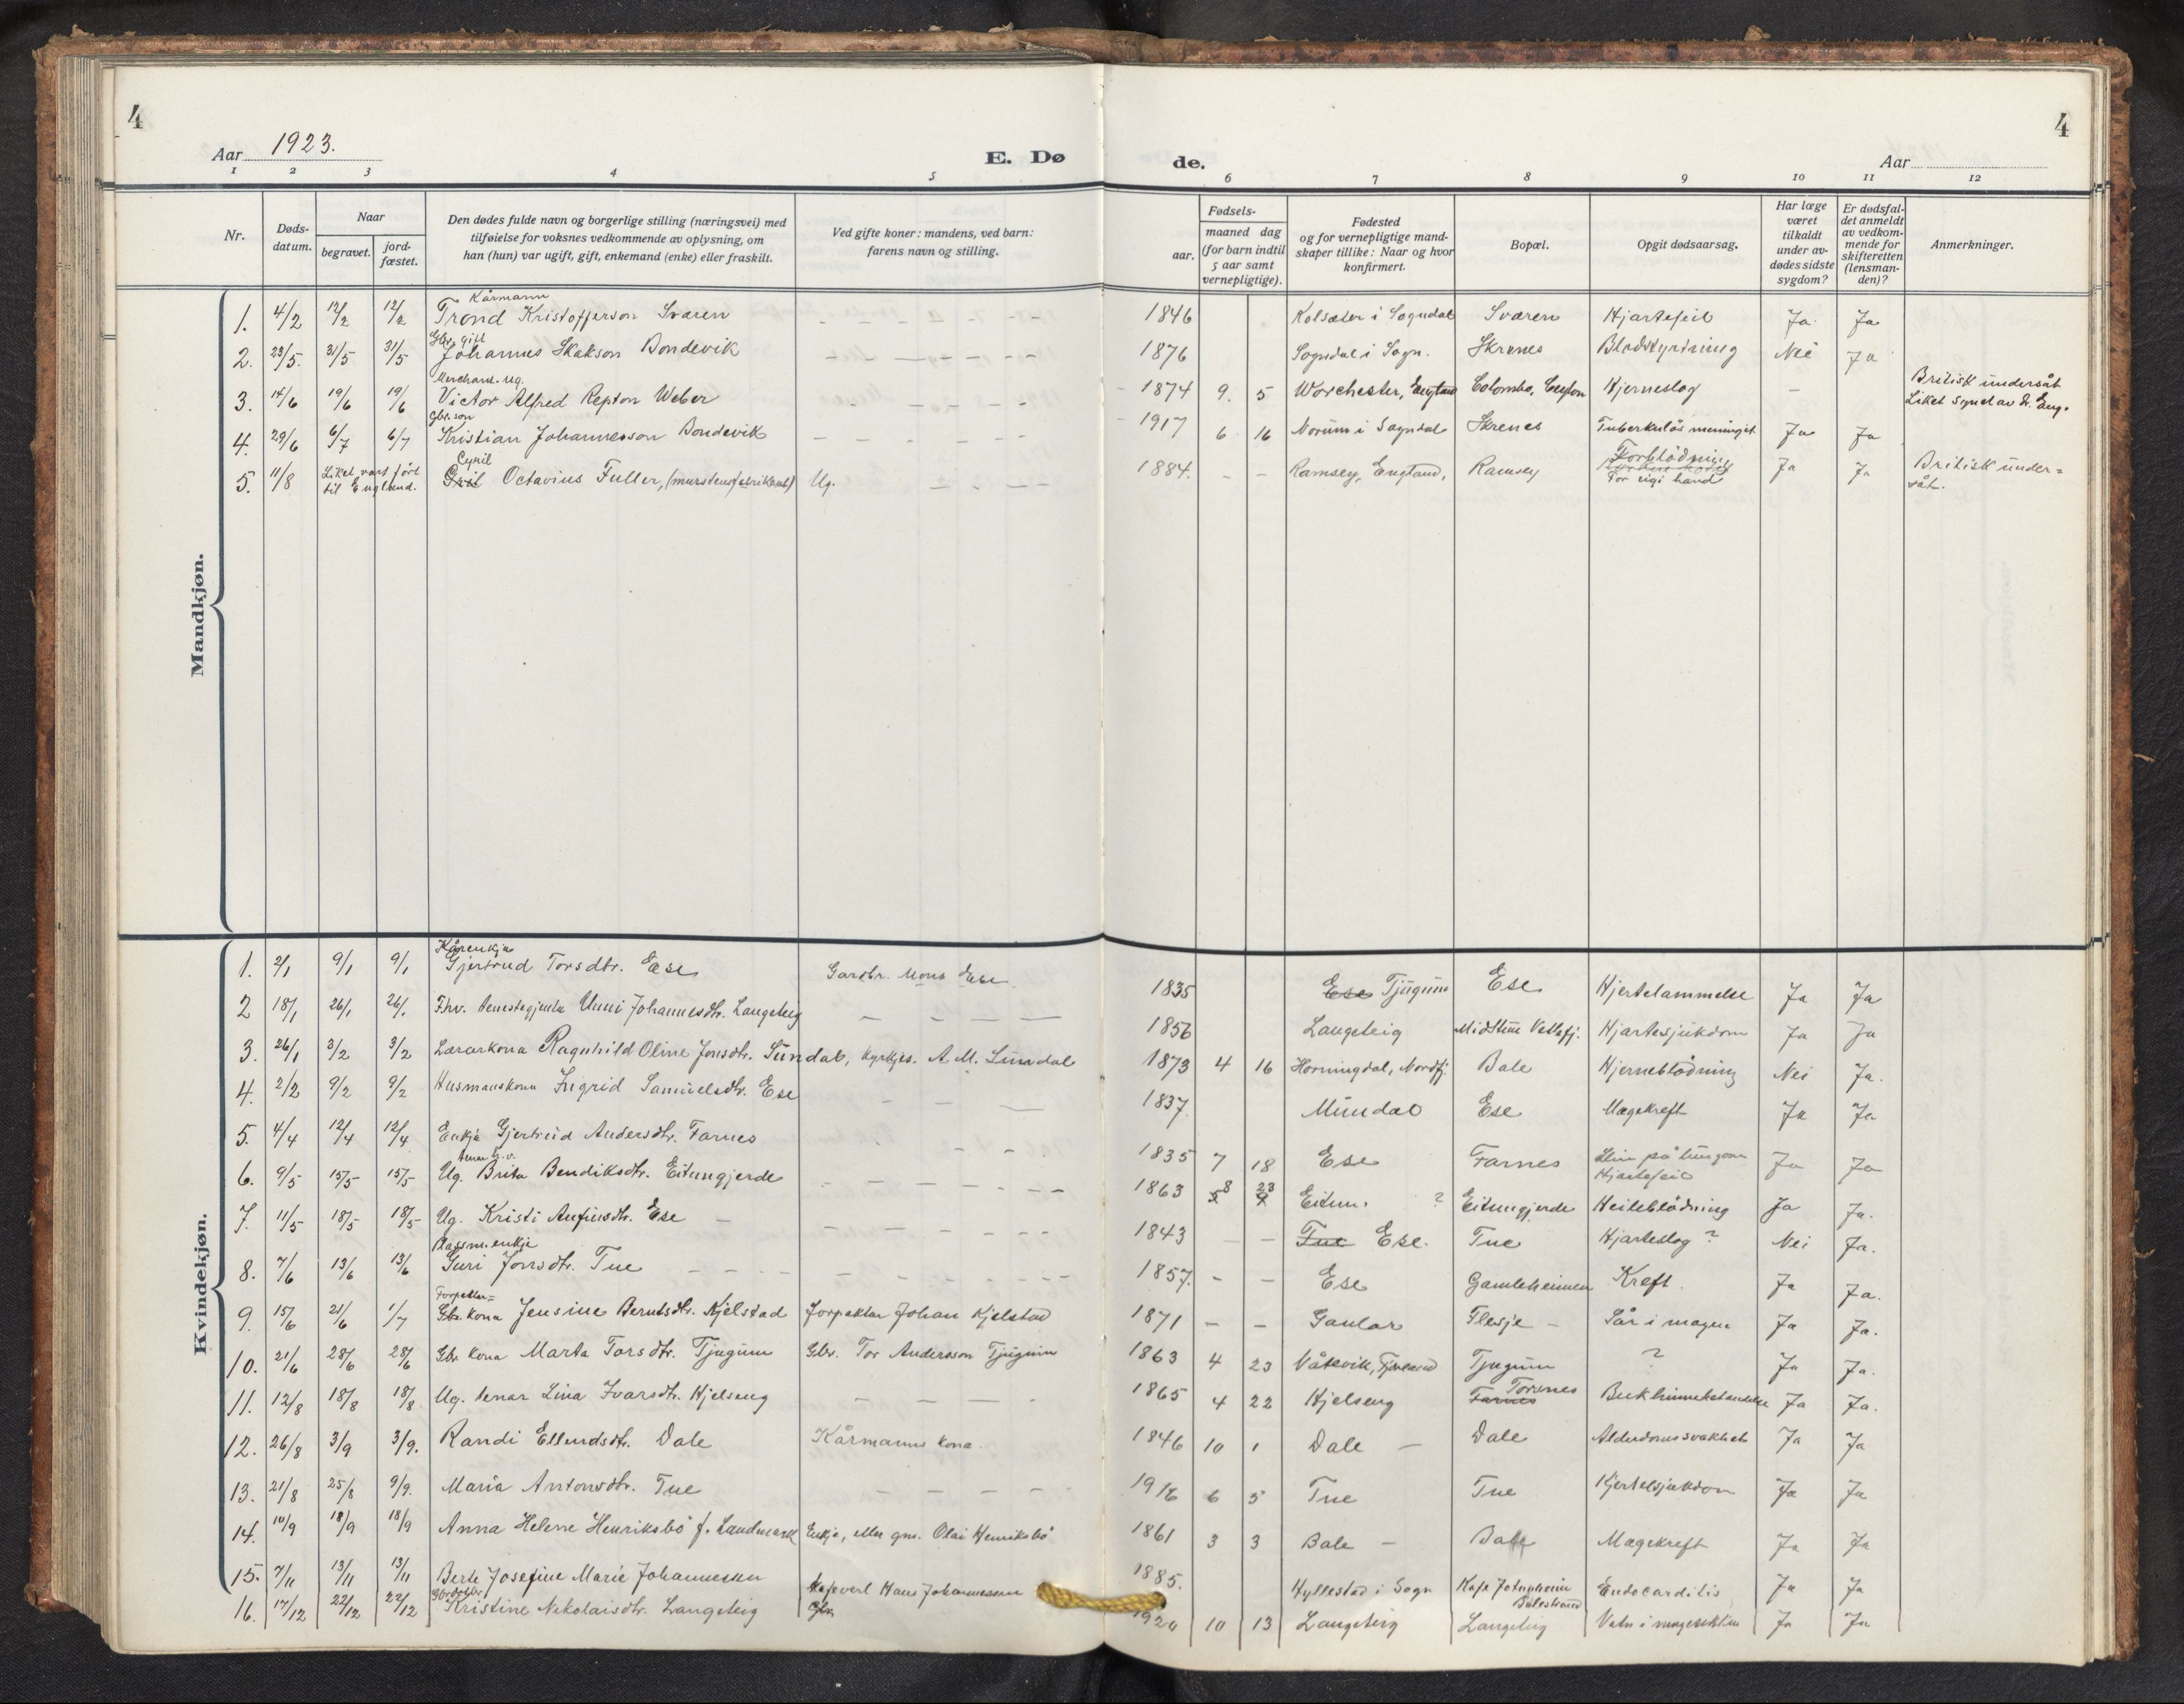 4
4
Aar 1923.
E. Dø
de.
Aar
1 2 3 4 5 6 7 8 9 10 11 12
Nr.
Døds-
datum.
Naar
begravet.
jord-
fæstet.
Den dødes fulde navn og borgerlige stilling (næringsvei) med
tilføielse for voksnes vedkommende av oplysning, om
han (hun) var ugift, gift, enkemand (enke) eller fraskilt.
Ved gifte koner: mandens, ved barn:
farens navn og stilling.
Fødsels-
aar.
maaned dag
(for barn indtil
5 aar samt
vernepligtige).
Fødested
og for vernepligtige mand-
skaper tillike: Naar og hvor
konfirmert.
Bopæl.
Opgit dødsaarsag.
Har læge
været
tilkaldt
under av-
dødes sidste
sygdom?
Er dødsfal-
det anmeldt
av vedkom-
mende for
skifteretten
(lensman-
den)?
Anmerkninger.
Mandkjøn.
Kårmann
1. 4/2 12/2 12/2 Trond Kristofferson Sværen 1846 Kolsæter i Sogndal Sværen Hjartefeil Ja Ja
Gbr. gift
2. 23/5. 31/5 31/5 Johannes Skakson Bondevik 1876 Sogndal i Sogn. Skrenes Blodstyrtning Nei Ja
Merchant. ug.
3. 14/6 19/6 19/6 Victor Alfred Repton Weber 1874 9. 5 Worchester, England Colombo, Ceylon Hjerneslag - Britisk undersåt
Liket synet av dr. Eng.
Gbr. son
4. 29/6 6/7 6/7 Kristian Johannesson Bondevik 1917 6 16 Norum i Sogndal Skrenes Tuberkuløs meningit Ja Ja
Cyril
5. 11/8 Liket vart ført
til England. Octavius Fuller, (murstensfabrikant) Ug. 1884. - - Ramsey, England, Ramsey Forblödning
For eigi hand Ja Ja Britisk under=
såt.
Kvindekjøn.
Kårenkja
1. 2/1 9/1 9/1 Gjertrud Torsdtr. Ese Gardbr. Mons Ese. 1835 Ese Tjugum Ese Hjertelammelse Ja Ja
2 18/1 26/1 26/1 Fhv. tenestegjenta Unni Johannesdtr. Langeteig 1856 Langeteig Midstun Vetlefj. Hjartesjukdom Ja Ja
3. 26/1 3/2 3/2 Lærarkona Ragnhild Oline Jonsdtr. Sundal, kyrkjes. A. M. Sundal 1873 4 16 Horningdal, Nordfj. Bale Hjerneblödning Nei Ja.
4. 2/2 9/2 9/2 Husmanskona Ingrid Samuelsdtr. Ese 1837. Mundal Ese Magekreft Ja Ja
5. 4/4 12/4 12/4 Enkja Gjertrud Andersdtr. Farnes 1835 7 18 Ese Farnes Slim på lungom
Hjartefeil Ja Ja
6. 9/5 15/5 15/5 Ug. Brita Bendiksdtr. Eitungjerde 1863 8 23 Eitun. ? Eitungjerde Heileblödning Ja Ja.
7. 11/5 18/5 18/5 Ug. Kristi Anfinsdtr. Ese 1843 - - Tue Ese. Tue Hjarteslag ? Nei Ja.
Plassm. enkje
8. 7/6 13/6 13/6 Guri Jonsdtr. Tue 1857. - - Ese Gamleheimen Kreft. Ja Ja.
Forpaktar=
9. 15/6 21/6 1/7 Gbr. kona Jensine Berntsdtr. Kjelstad Forpaktar Johan Kjelstad 1871 - - Gaular Flesje Sår i magen Ja Ja.
10. 21/6 28/6 28/6 Gbr. kona Marta Torsdtr. Tjugum Gbr. Tor Andersson Tjugum 1863 4 23 Våtevik, Fjærland Tjugum ? Ja Ja.
11. 12/8 18/8 18/8 Ug. tenar Lina Ivarsdtr. Hjelseng 1865 4 22 Hjelseng Farnes Torsnes Bukhinnebetændelse Ja Ja.
12. 26/8 3/9 3/9. Randi Ellendsdtr. Dale Kårmanns kona. 1846 10 1 Dale Dale Alderdomssvakhet Ja Ja
13. 21/8 25/8 9/9. Maria Antonsdtr. Tue 1916 6 5 Tue Tue Kjertelsjukdom Ja Ja
14. 10/9 18/9 18/9 Anna Helene Henriksbö f. Landmark Enkje, etter gm. Olai Henriksbö 1861 3 3 Bale Bale Magekreft Ja Ja
15. 7/11 13/11 13/11 Berte Josefine Marie Johannessen Kafeverl Hans Johannessen 1885. Hyllestad i Sogn Kafe Jotunheim
Balestrand Endocarditis Ja Ja
Gbr. dotter
16. 17/12 22/12 22/12 Kristine Nikolaisdtr. Langeteig Gbr. 1920 10 13 Langeteig Langeteig Ja Ja